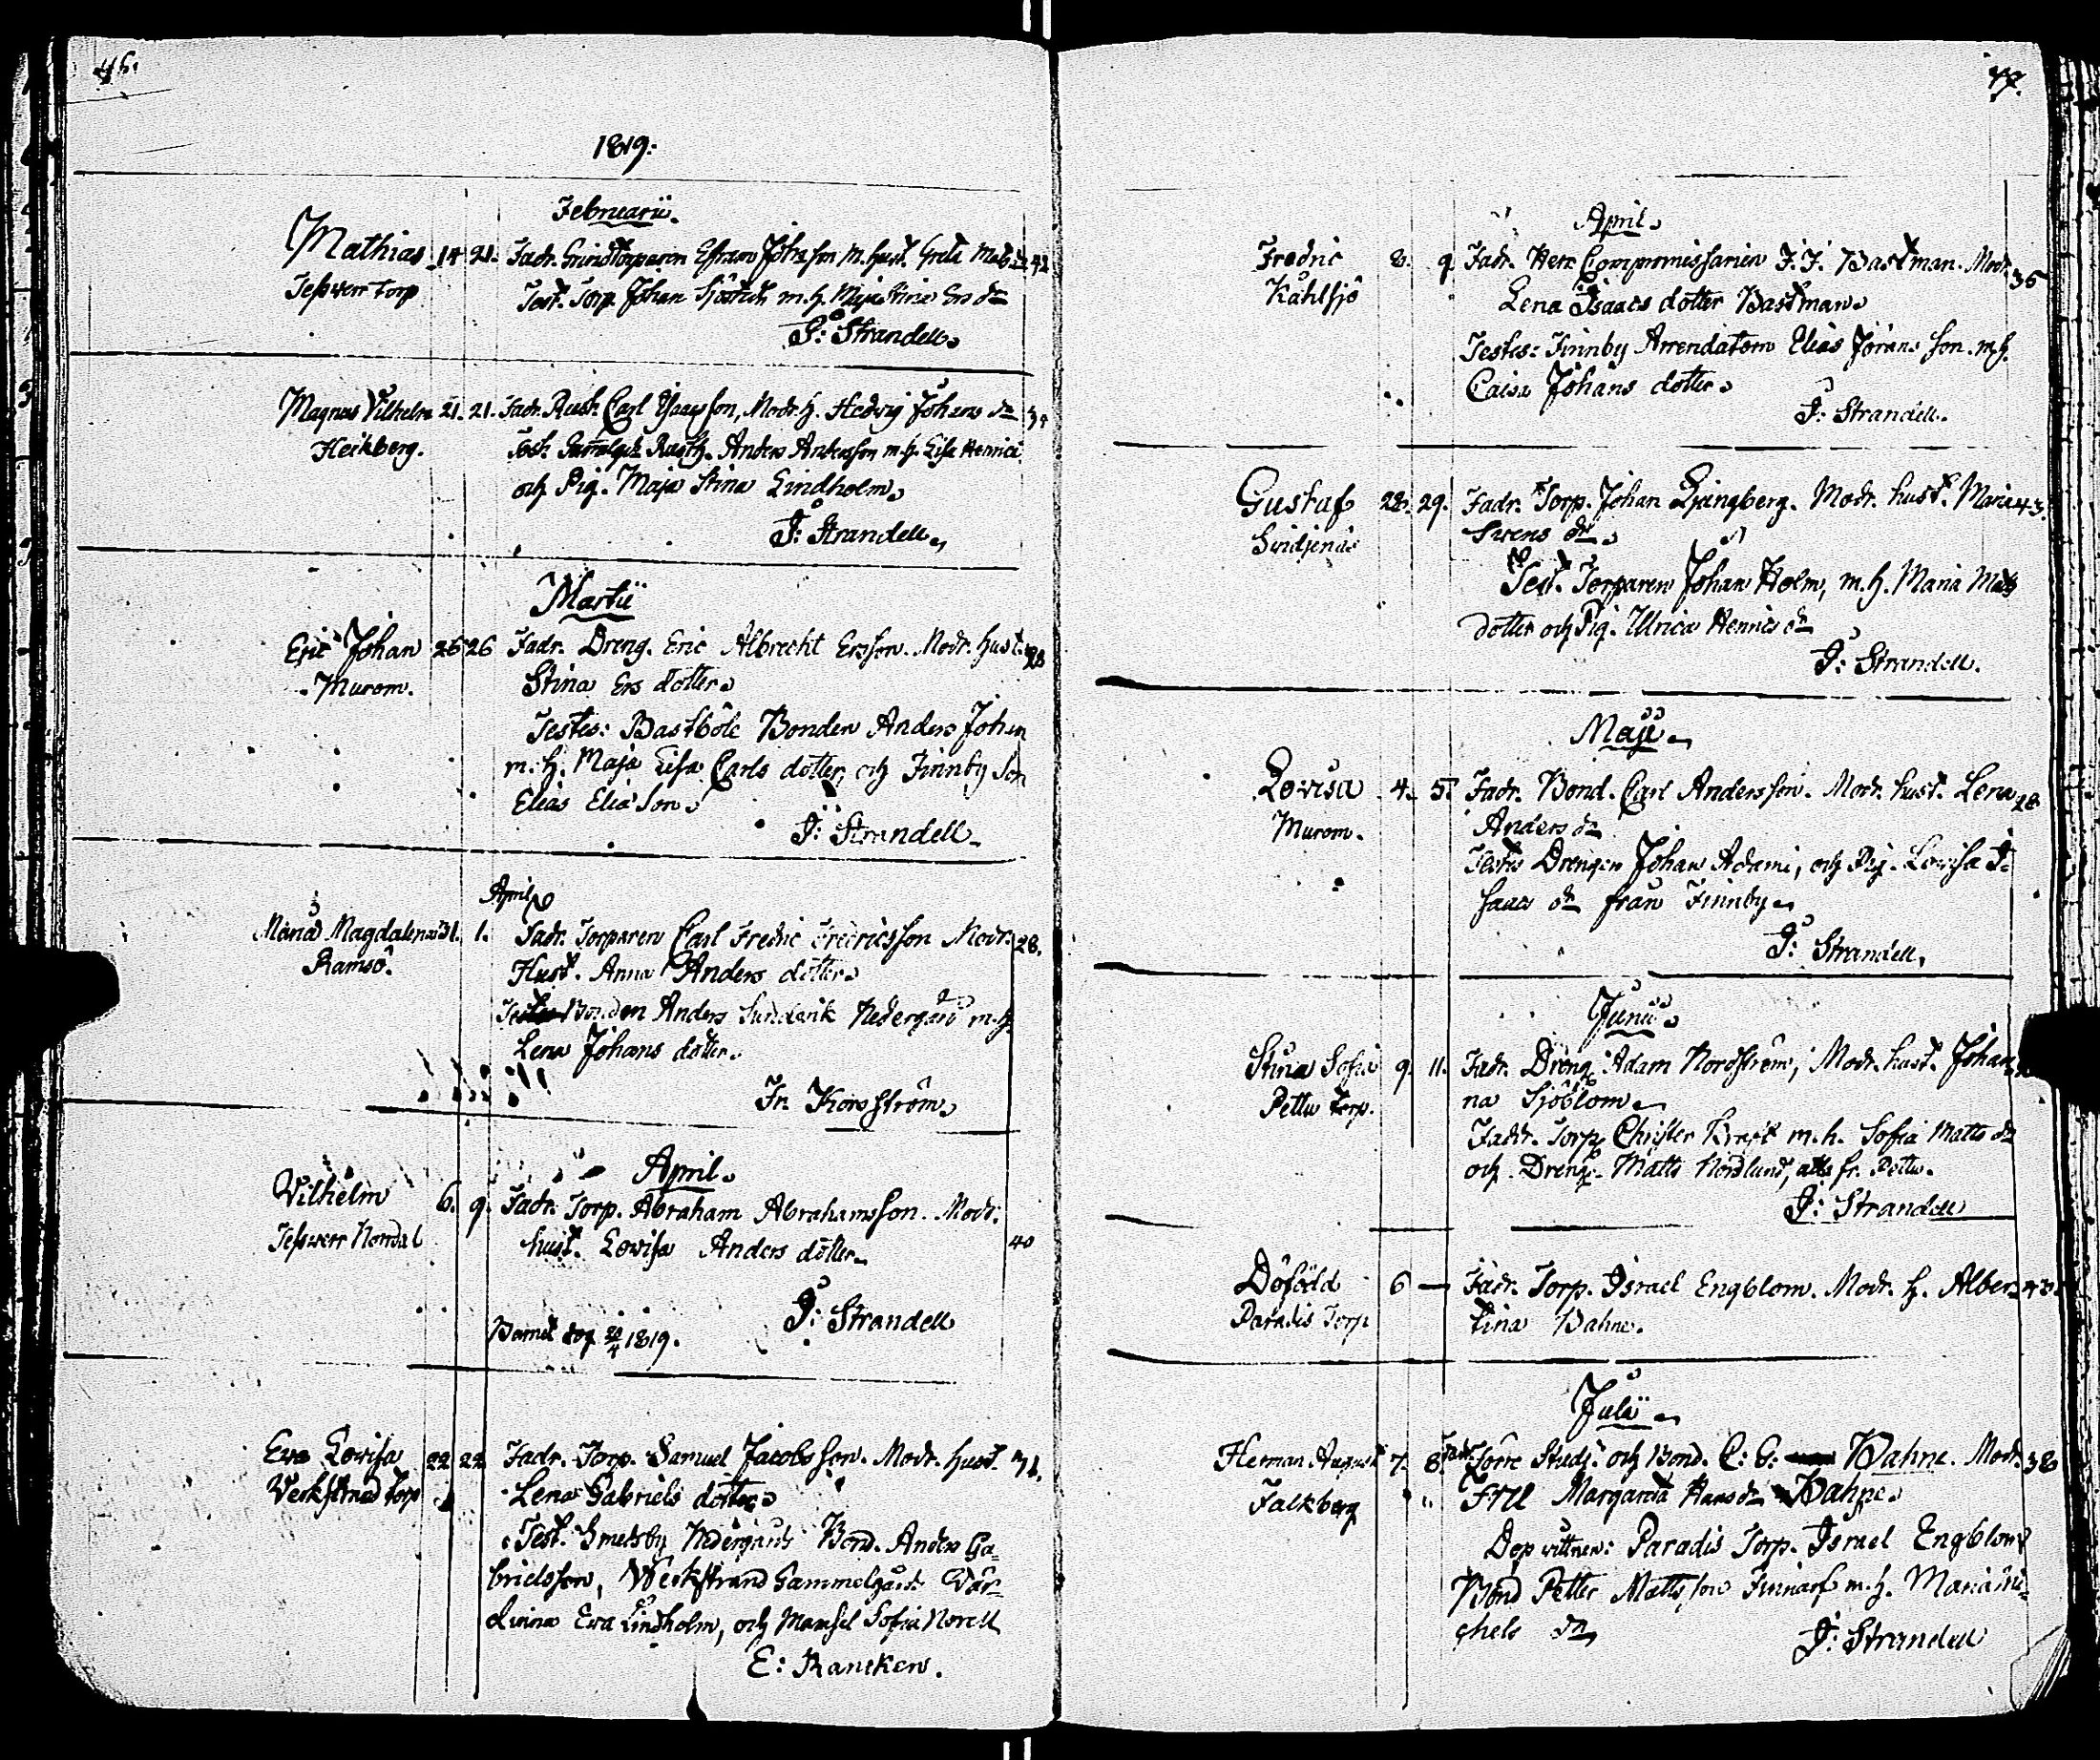 46.
1819.
Februarii.
Mathias 14 21. Fadr. Grindtorparen Efraim Johansson m. hust. Greta Mats dr 42
Jessverr torp Test. Torp. Johan Sjöstedt m. h. Maja Stina Ers dr
J: Strandell.
Magnus Vilhelm 21. 21. Fadr. Rusth. Carl Isaacsson, Modr. h. Hedvig Johans dr 34
Heikberg. Test. Rusth. Anders Andersson m. h. Lisa Henrics
och Pig. Maja Stina Lindholm.
J: Strandell.
Martii
Eric Johan 26 26 Fadr. Dreng. Eric Albrecht Ersson. Modr. hust. 28
Murom. Stina Ers dotter.
Testes: Bastböle Bonden Anders Johan
m. h. Maja Lisa Carls dotter, och Finnby Son
Elias Eliasson.
J: Strandell.
April
Maria Magdalena 31. 1. Fadr. Torparen Carl Fredric Fredricsson Modr. 28.
Ramsö. Hust. Anna Anders dotter.
Testes Bonden Anders Sundvik Nedergård m. h.
Lena Johans dotter.
Fr. Korsström.
April.
Vilhelm 6. 9. Fadr. Torp. Abraham Abrahamsson. Modr.
Jessverr Norrdal hust. Lovisa Anders dotter. 40
J: Strandell
Barnet dog 20/4 1819.
Eva Lovisa 22 22 Fadr. Torp. Samuel Jacobsson. Modr. hust. 31.
Verkstrand torp Lena Gabriels dotter.
Test. Smedsby Nedergårds Bond. Anders Ga-
brielsson, Werkstrand Gammelgårds Vär-
dinna Eva Lindholm, och Mamsel Sofia Norell
E: Rancken.
47.
April.
Fredric 8. 9 Fadr. Herr Compromissarien J. J. Bastman. Modr. 35
Kåhlsjö Lena Isaacs dotter Bastman.
Testes: Finnby Arrendatorn Elias Jörans son. m. h.
Caisa Johans dotter.
J: Strandell.
Gustaf 28. 29. Fadr. Torp. Johan Ljungberg. Modr. hust. Maria 43.
Svens dr.
Test. Torparen Johan Holm, m. h. Maria Mats
dotter och Pig. Ulrica Henrics dr
J: Strandell.
Maji
Lovisa 4. 5. Fadr. Bond. Carl Andersson. Modr. hust. Lena 28
Murom. Anders dr
Testes Drengen Johan Adami, och Pig. Lovisa I-
saacs dr från Finnby.
J: Strandell.
Junii
Stina Sofia 9. 11. Fadr. Dreng. Adam Nordström, Modr. hust. Johan-
Pettu torp. na Sjöblom.
Faddr. Torp. Christer Kraft m. h. Sofia Matts dr
och Dreng. Matts Nordlund, alla fr. Pettu.
J: Strandell
Döfödd 6 — Fadr. Torp. Israel Engblom. Modr. h. Alber- 43.
Paradis Torp tina Bahne.
Julii
Herman August 7. 8. Fadr. Förre Studj. och Bond. C: G: Bahne. Modr. 38
Falkberg Fru Margareta Hans dr Bahne.
Dop vittnen: Paradis Torp. Israel Engblom
Bond Petter Mattsson Finnarf m. h. Maria Mi-
chels dr
J: Strandell